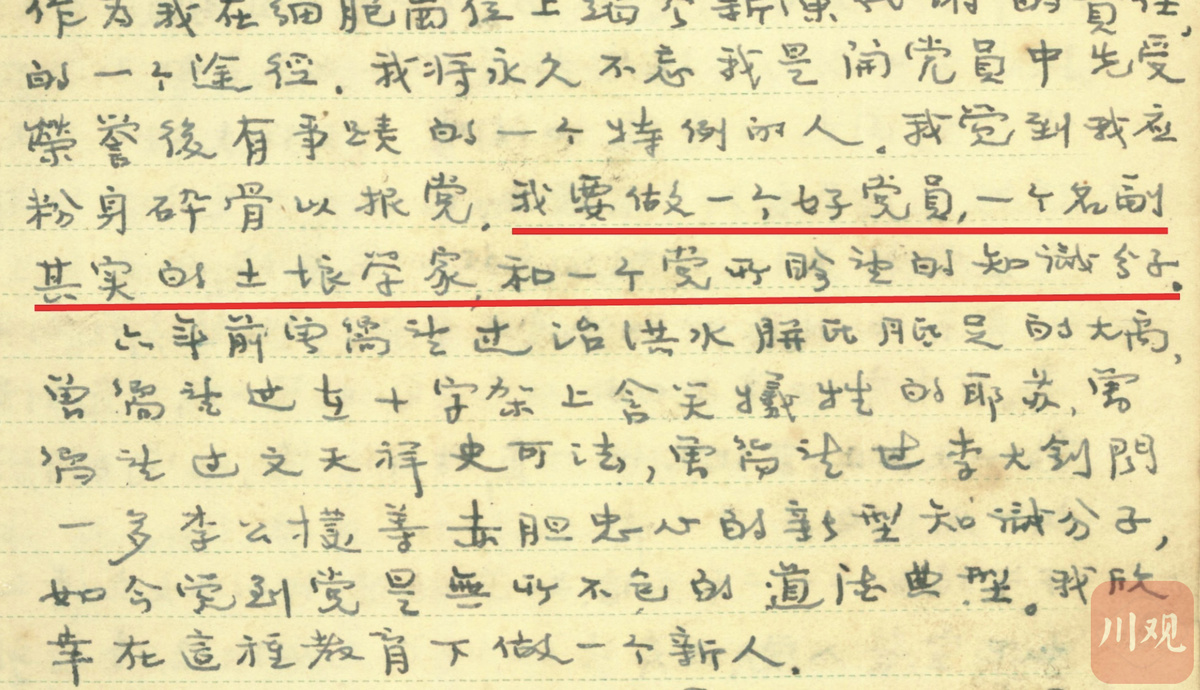 作为我在细胞岗位上 新陈代谢的责任,
的一个途径.我将永久不忘我是开党員中先受
榮誉後有事蹟的一个特例的人.我觉到我应
粉身碎骨以报党.我要做一个好党員,一个名副
其实的土壤学家,和一个党所盼望的知識分子.
六年前曾 过治洪水胼 胝足的大禹,
曾 过在十字架上含笑犧牲的耶苏,曾
过文天祥史可法,曾 过李大釗聞
一多李公樸等赤胆忠心的新型知識分子,
如今觉到党是無所不包的道法典型。我欣
幸在這種教育下做一个新人.
川观